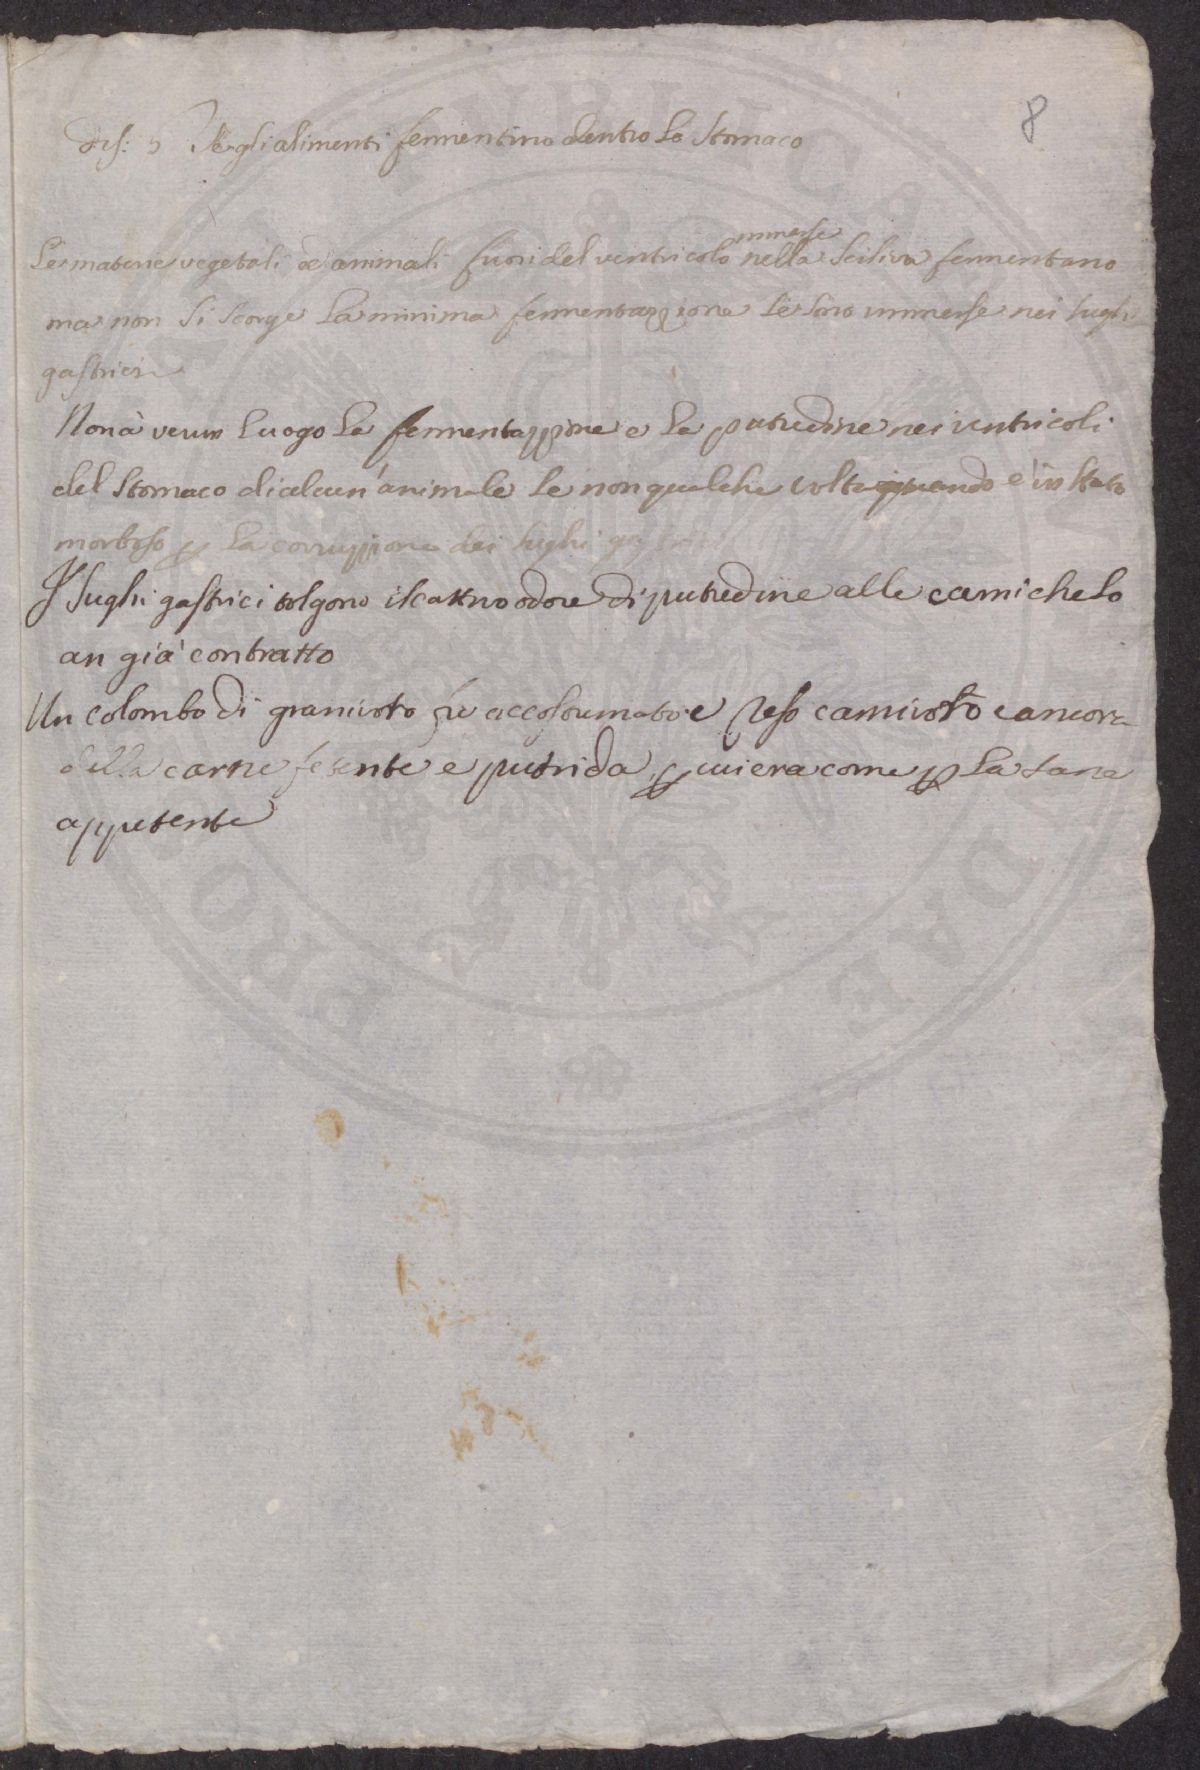 8
Dis: 5 Se gli alimenti fermentino dentro lo Stomaco
immerse
Le materie vegetali ed animali fuori del ventricolo nella Sciliva fermentano
ma non si scorge la minima fermentazzione se sino immerse nei sughi
gastrici
Non à verun luogo la fermentazzione e la putredine nei ventricoli
del Stomaco di alcun'animale se non qualche volta quando è in stato
morboso p la corruzzione dei sughi gastrici
I sughi gastrici tolgono il cattivo odore di putredine alle carni che lo
an già contratto
Un colombo di granivoro fù accostumato e reso carnivoro e ancora
della carne fetente e putrida, p cui era come p la sana
appetente